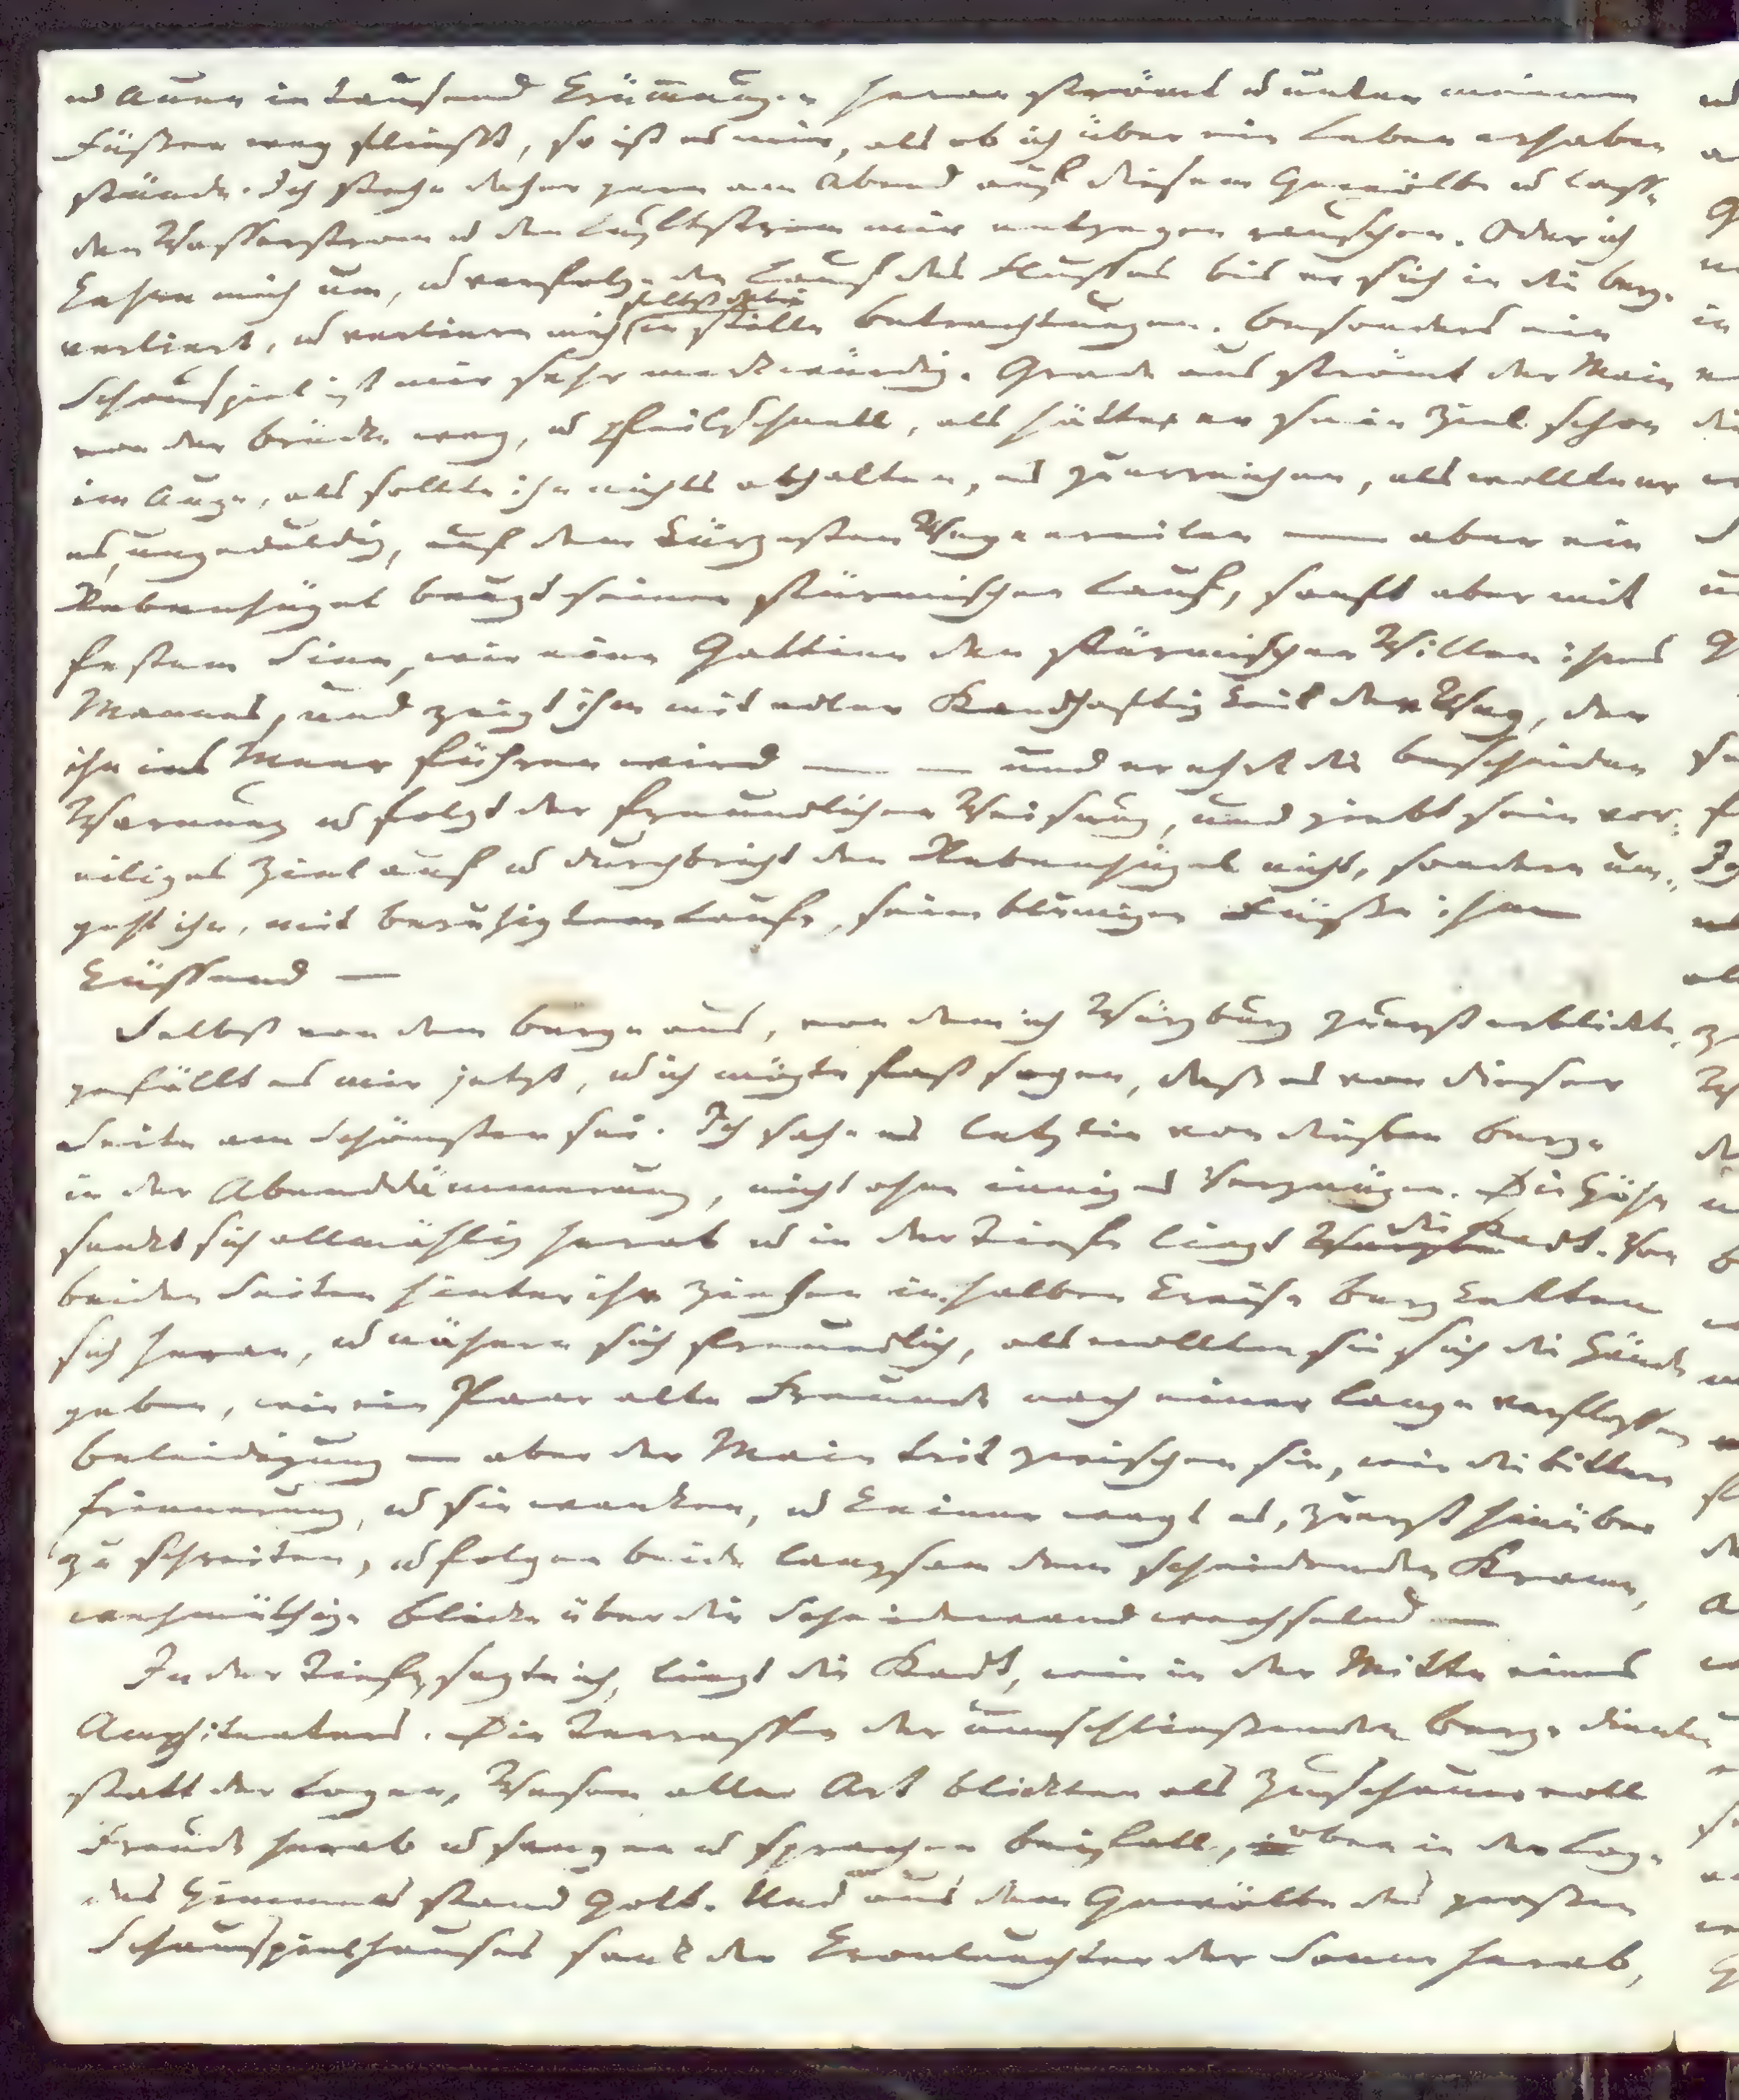 u Auen in tausend Krümmungen heran strömt u unter meinen
Füßen weg fließt, so ist es mir, als ob ich über ein Leben erhaben
stünde. Ich stehe daher gern am Abend auf diesem Gewölbe u lasse
den Wasserstrom u den Luftstrom mir entgegen rauschen. Oder ich
kehre mich um, u verfolge den Lauf des Flusses bis er sich in die Berge
verliert, u verliere mich selbst dabei in stille Betrachtungen. Besonders ein
Schauspiel ist mir sehr merkwürdig. Grade aus strömt der Main
von der Brücke weg, u pfeilschnell, als hätte er sein Ziel schon
im Auge, als sollte ihn nichts abhalten, es zu erreichen, als wollte er
es, ungeduldig, auf dem kürzesten Wege ereilen — aber ein
Rebenhügel beugt seinen stürmischen Lauf, sanft aber mit
festem Sinn, wie eine Gattinn den stürmischen Willen ihres
Mannes, und zeigt ihm mit edler Standhaftigkeit den Weg, der
ihn ins Meer führen wird — — und er ehrt die bescheidne
Warnung u folgt der freundlichen Weisung, und giebt sein vor-
eiliges Ziel auf u durchbricht den Rebenhügel nicht, sondern um-
geht ihn, mit beruhigtem Laufe, seine blumigen Füße ihm
küssend —
Selbst von dem Berge aus, von dem ich Würzburg zuerst erblickte,
gefällt es mir jetzt, u ich mögte fast sagen, daß es von dieser
Seite am Schönsten sei. Ich sahe es letzthin von diesem Berge
in der Abenddämmerung, nicht ohne inniges Vergnügen. Die Höhe
senkt sich allmählig herab u in der Tiefe liegt die Stadt. Von
beiden Seiten hinter ihr ziehen in halben Kreise Bergketten
sich heran, u nähern sich freundlich, als wollten sie sich die Hände
geben, wie ein Paar alte Freunde nach einer lange verflossenen
Beleidigung — aber der Main trit zwischen sie, wie die bittere
Erinnerung, u sie wanken, u keiner wagt es, zuerst hinüber
zu schreiten, u folgen beide langsam dem scheidenden Strome,
wehmüthige Blicke über die Scheidewand wechselnd —
In der Tiefe, sagte ich, liegt die Stadt, wie in der Mitte eines
Amphiteaters. Die Terrassen der umschließenden Berge dienten
statt der Logen, Wesen aller Art blickten als Zuschauer voll
Freude herab u sangen u sprachen Beifall, oben in der Loge
des Himmels stand Gott. Und aus dem Gewölbe des großen
Schauspielhauses sank der Kronleuchter der Sonne herab,